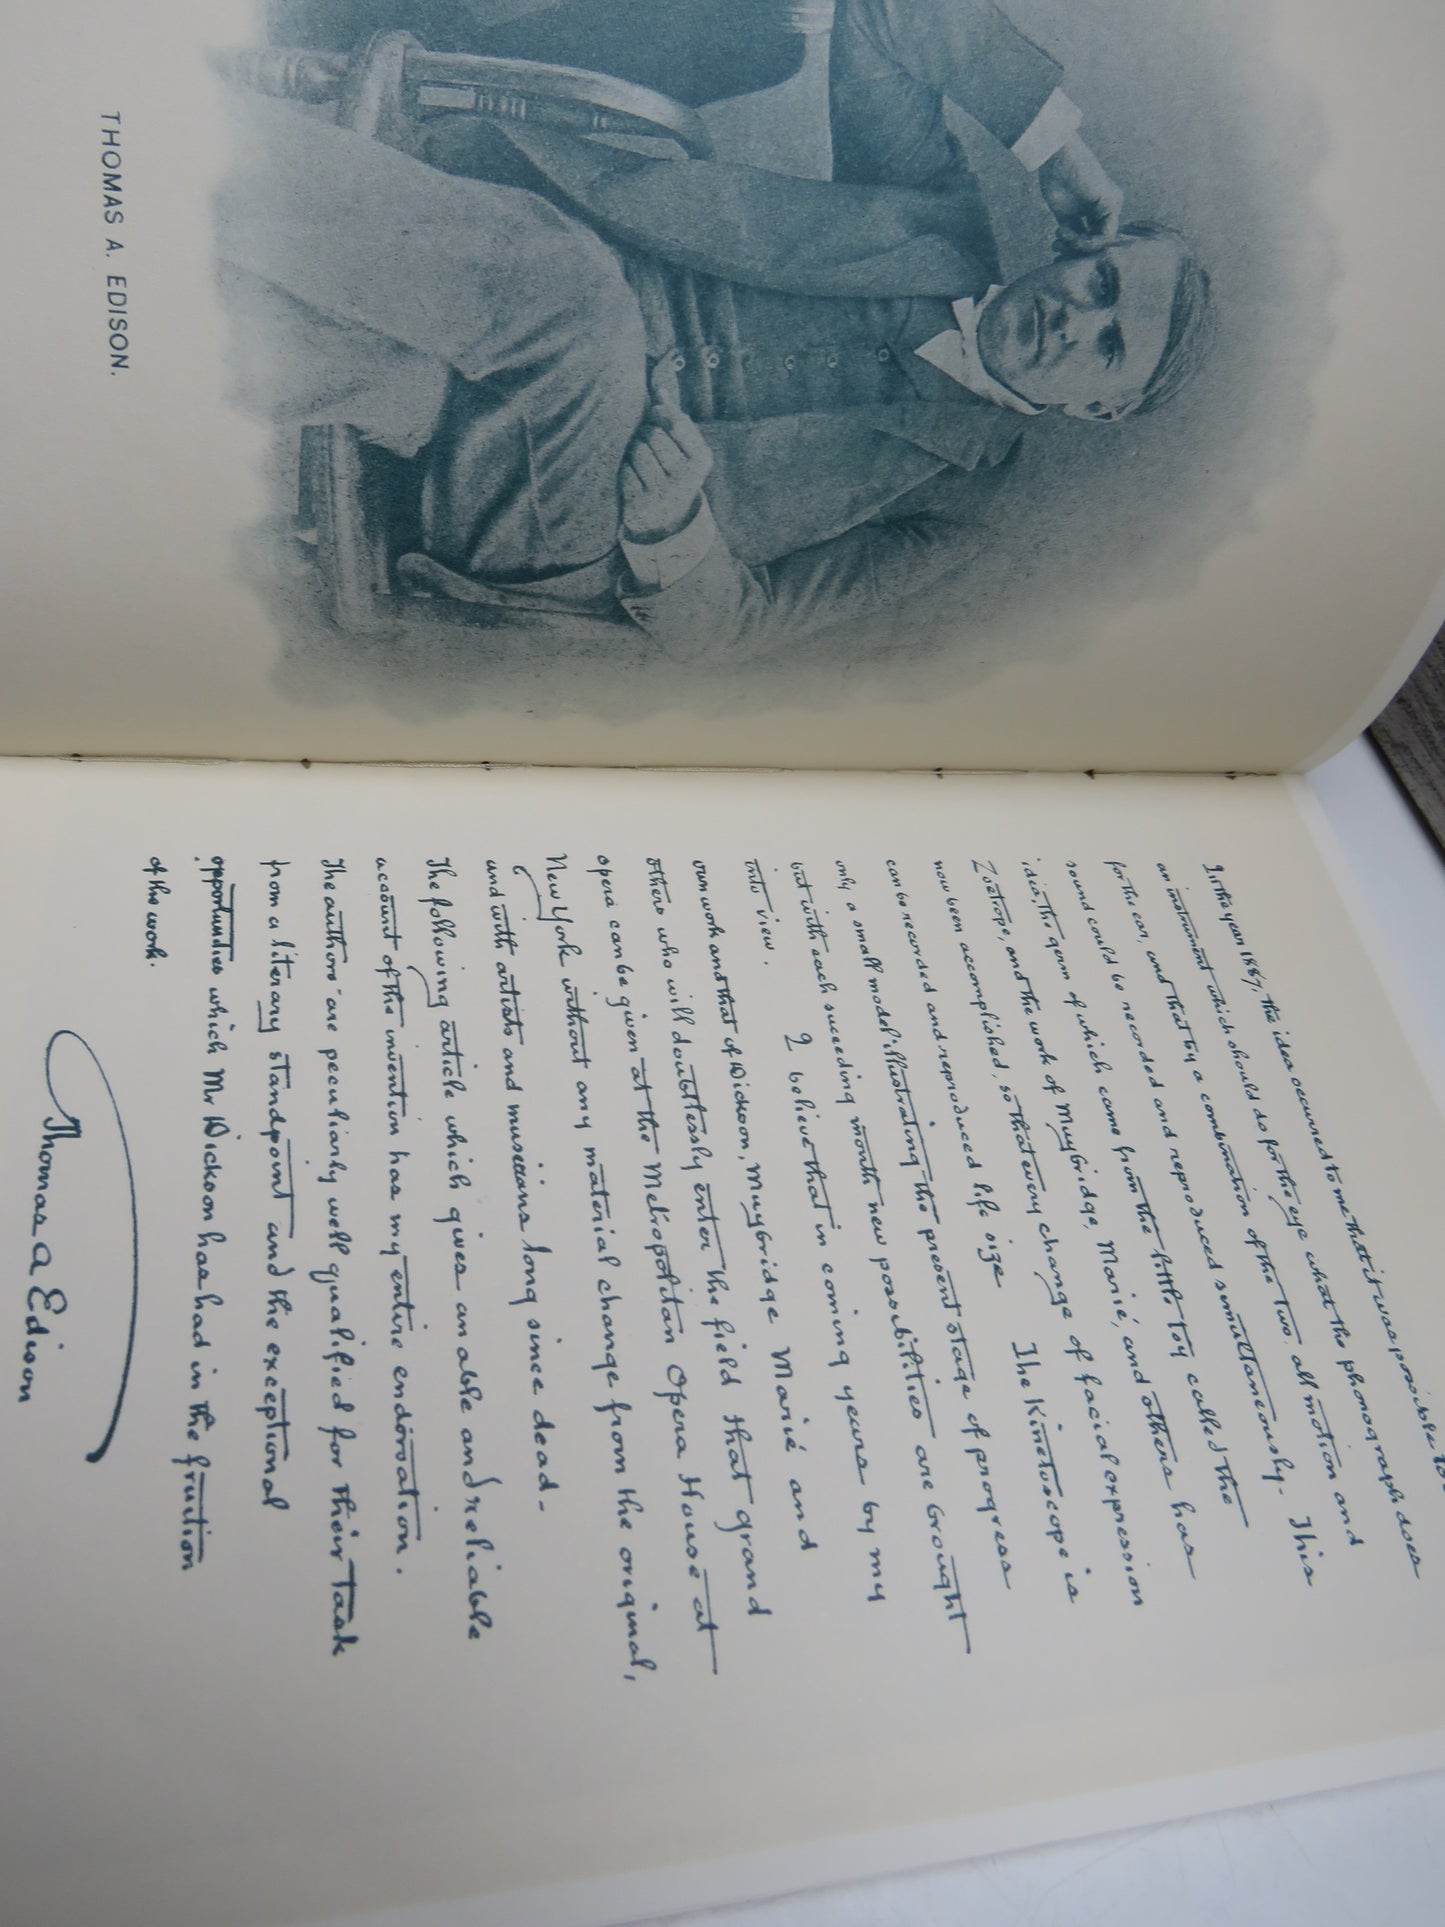 THOMAS A. EDISON.
In the year 1887, the idea occurred to me that it was possible to
an instrument which should do for the eye what the phonograph does
for the ear, and that by a combination of the two, all motion and
sound could be recorded and reproduced simultaneously. This
idea, the germ of which came from the little toy called the
Zoetrope, and the work of Muybridge, Marié, and others has
now been accomplished, so that every change of facial expression
can be recorded and reproduced life size The Kinetoscope is
only a small model illustrating the present stage of progress
but with each succeeding month new possibilities are brought
into view. I believe that in coming years by my
own work and that of Dickson, Muybridge Marié and
others who will doubtlessly enter the field that grand
opera can be given at the Metropolitan Opera House at
New York without any material change from the original,
and with artists and musicians long since dead-
The following article which gives an able and reliable
account of the invention has my entire endorsation.
The authors are peculiarly well qualified for their task
from a literary standpoint and the exceptional
opportunities which Mr Dickson has had in the fruition
of the work.
Thomas A Edison